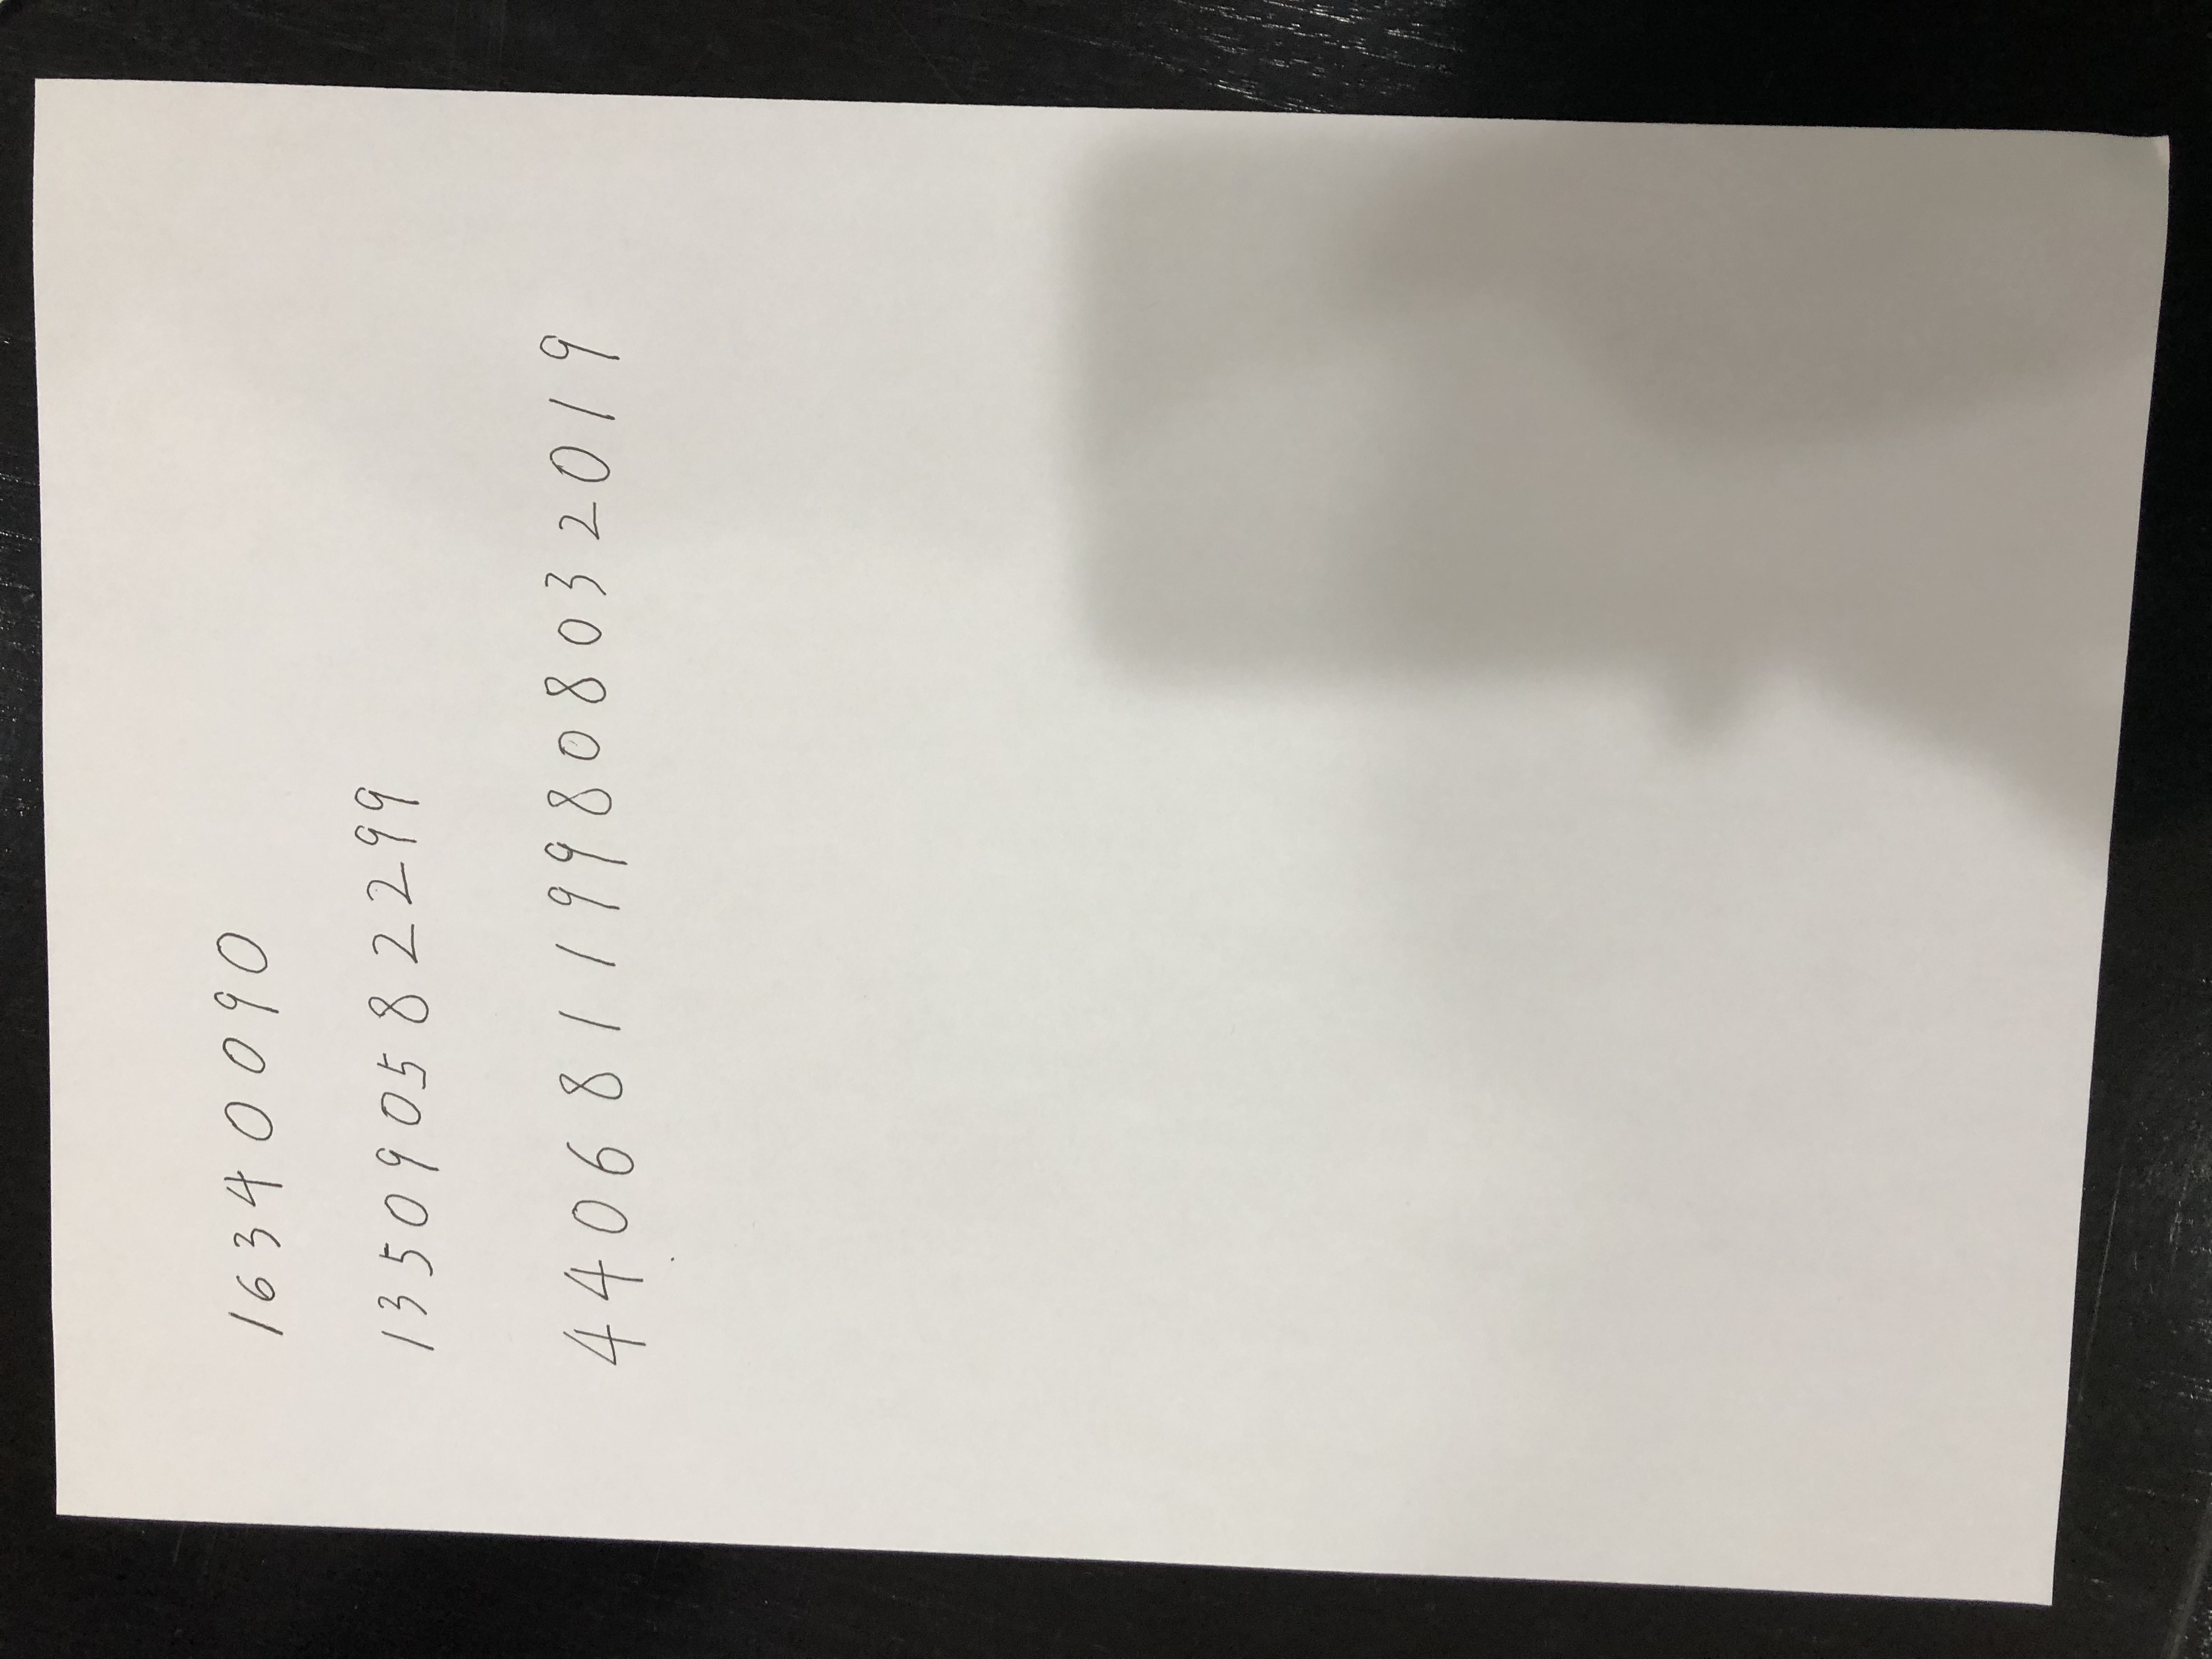 16340090
135090582299
440681199808032019